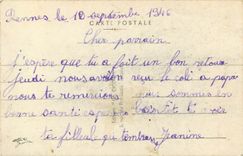 Rennes le 12 septembre 1946
CARTE POSTALE
Cher parrain
j'espère que tu a fait un bon retour
jeudi nous avon reçu le coli a papa
nous te remercions nous sommes en
bonne santé bientôt te voir
ta filleul qui Jeanine